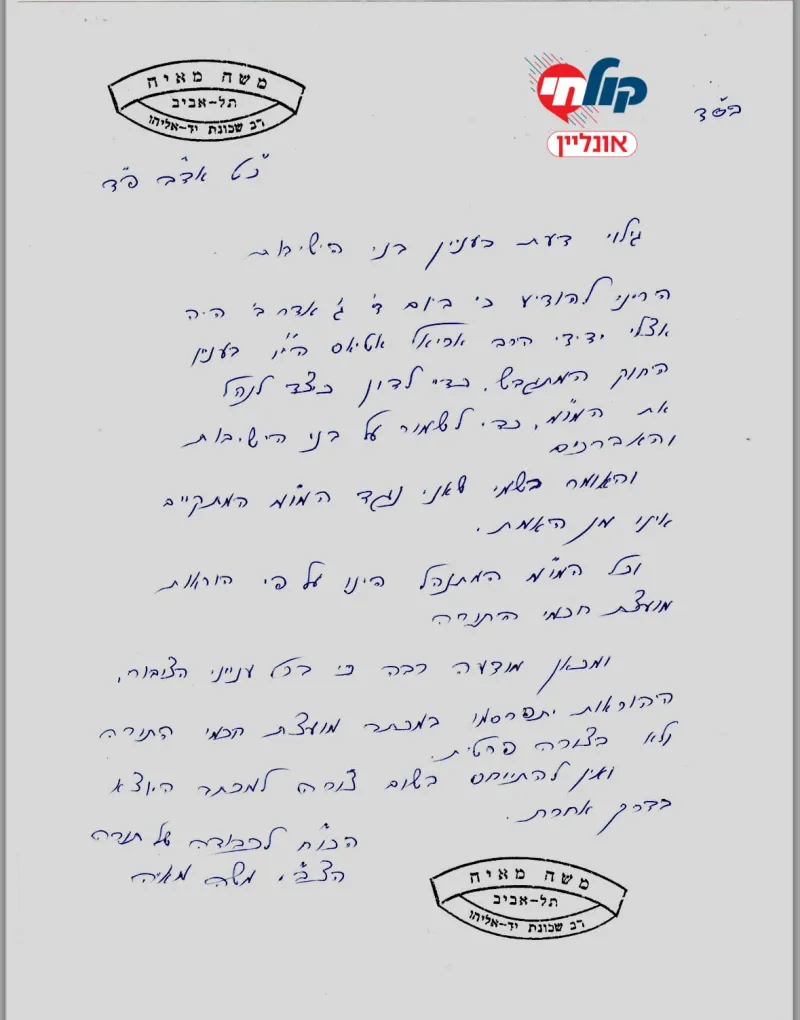 משה מאיה
תל-אביב
רב שכונת יד-אליהו
קול חי
אונליין
בס"ד
כ"ט אד"ב פ"ד
גילוי דעת בענין בני הישיבות
הריני להודיע כי ביום ד' ג' אדר ב' היה
אצלי ידידי הרב אריאל אטיאס הי"ו בענין
החוק המתגבש, כדי לדון כיצד לנהל
את המו"מ, כדי לשמור על בני הישיבות
והאברכים
והאומר בשמי שאני נגד המו"מ המתקיים
אינו מן האמת.
וכל המו"מ המתנהל הינו על פי הוראות
מועצת חכמי התורה
ומכאן מודעה רבה כי בכל ענייני הציבור,
ההוראות יתפרסמו במכתב מועצת חכמי התורה
ולא בצורה פרטית.
ואין להתייחס בשום צורה למכתב היוצא
בדרך אחרת.
הכו"ח לכבודה של תורה
הצב"י משה מאיה
משה מאיה
תל-אביב
רב שכונת יד-אליהו